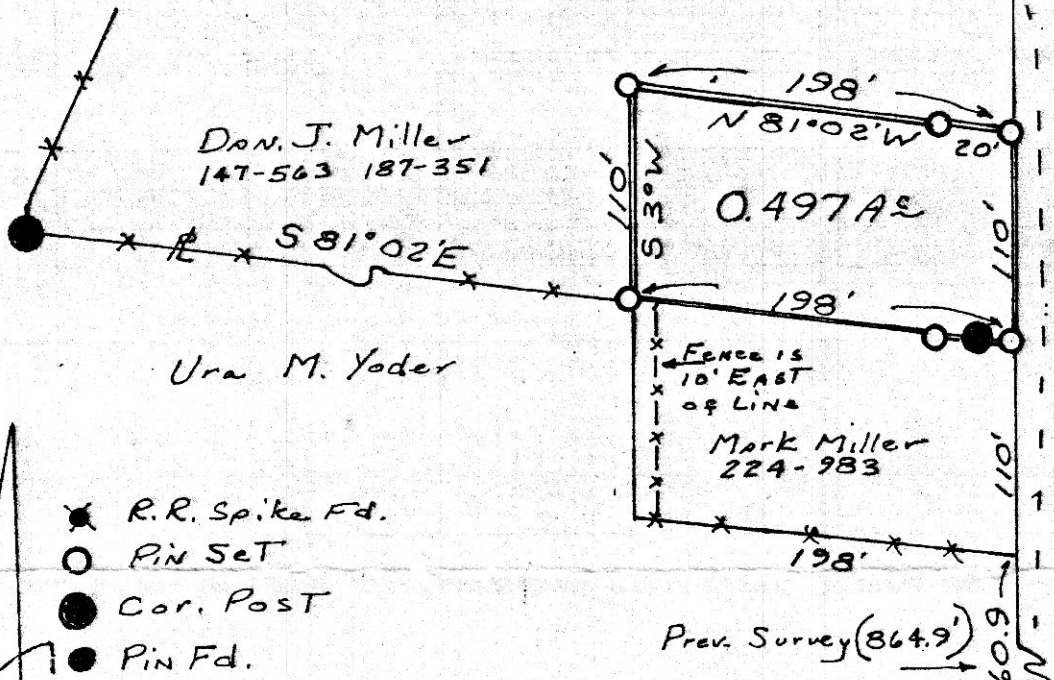 198'
N 81°02'W
20'
Don. J. Miller
147-563 187-351
110'
S 3°W
0.497 Ac
110'
PL
S 81°02'E
198'
Ura M. Yoder
Fence is
10' EAST
of LINE
Mark Miller
224-983
110'
198'
R.R. Spike Fd.
PIN SET
Cor. Post
PIN Fd.
Prev. Survey (864.9')
60.9